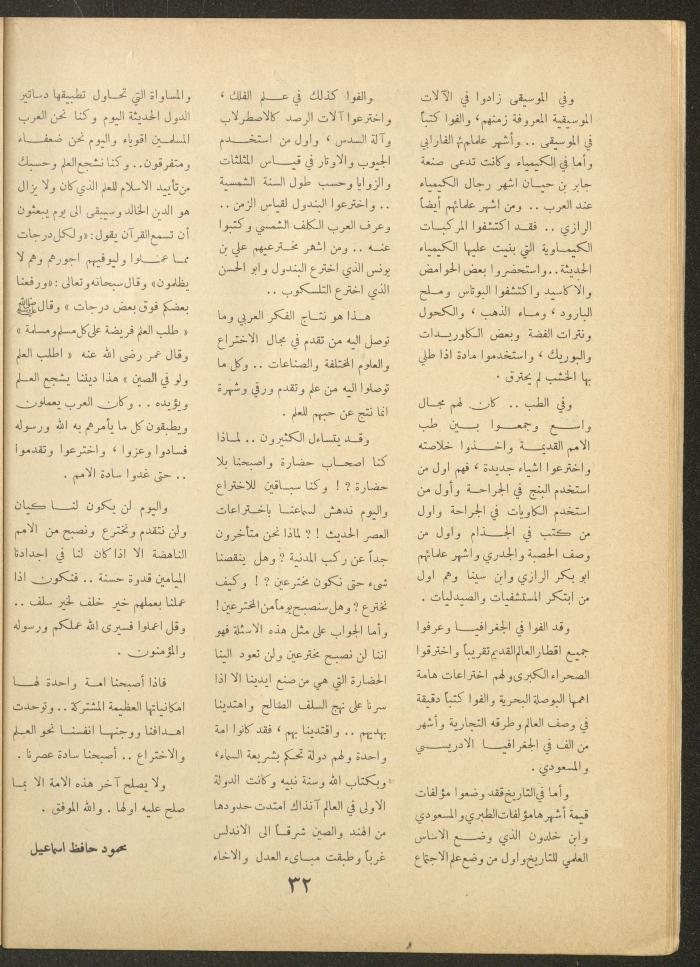 وفي الموسيقى زادوا في الآلات
الموسيقية المعروفة زمنهم، والفوا كتباً
في الموسيقى .. وأشهر علمائهم الفارابي
وأما في الكيمياء وكانت تدعى صنعة
جابر بن حيان اشهر رجال الكيمياء
عند العرب .. ومن اشهر علمائهم أيضاً
الرازي .. فقد اكتشفوا المركبات
الكيماوية التي بنيت عليها الكيمياء
الحديثة .. واستحضروا بعض الحوامض
والاكاسيد واكتشفوا البوتاس وملح
البارود ، وماء الذهب ، والكحول
ونترات الفضة وبعض الكلوريدات
والبوريك ، واستخدموا مادة اذا طلي
بها الخشب لم يحترق .
وفي الطب .. كان لهم مجال
واسع وجمعوا بين طب
الامم القديمة واخذوا خلاصته
واخترعوا اشياء جديدة ، فهم اول من
استخدم البنج في الجراحة وأول من
استخدم الكاويات في الجراحة واول
من كتب في الجذام واول من
وصف الحصبة والجدري واشهر علمائهم
ابو بكر الرازي وابن سينا وهم اول
من ابتكر المستشفيات والصيدليات .
وقد الفوا في الجغرافيا وعرفوا
جميع اقطار العالم القديم تقريباً واخترقوا
الصحراء الكبرى ولهم اختراعات هامة
اهمها البوصلة البحرية والفوا كتباً دقيقة
في وصف العالم وطرقه التجارية وأشهر
من الف في الجغرافيا الادريسي
والمسعودي .
وأما في التاريخ فقد وضعوا مؤلفات
قيمة أشهرها مؤلفات الطبري والمسعودي
وابن خلدون الذي وضع الاساس
العلمي للتاريخ واول من وضع علم الاجتماع
والفوا كذلك في علم الفلك ،
واخترعوا آلات الرصد كالاصطرلاب
وآلة السدس ، واول من استخدم
الجيوب والاوتار في قياس المثلثات
والزوايا وحسب طول السنة الشمسية
.. واخترعوا البندول لقياس الزمن ..
وعرف العرب الكلف الشمسي وكتبوا
عنه .. ومن اشهر مخترعيهم علي بن
يونس الذي اخترع البندول وابو الحسن
الذي اخترع التلسكوب ..
هذا هو نتاج الفكر العربي وما
توصل اليه من تقدم في مجال الاختراع
والعلوم المختلفة والصناعات .. وكل ما
توصلوا اليه من علم وتقدم ورقي وشهرة
انما نتج عن حبهم للعلم .
وقد يتساءل الكثيرون .. لماذا
كنا اصحاب حضارة واصبحنا بلا
حضارة ؟ ! وكنا سباقين للاختراع
واليوم ندهش لسماعنا باختراعات
العصر الحديث ! ؟ لماذا نحن متأخرون
جداً عن ركب المدنية ؟ وهل ينقصنا
شيء حتى نكون مخترعين ؟ ! وكيف
نخترع ؟ وهل سنصبح يوماً من المخترعين !
وأما الجواب على مثل هذه الاسئلة فهو
اننا لن نصبح مخترعين ولن تعود الينا
الحضارة التي هي من صنع ايدينا الا اذا
سرنا على نهج السلف الصالح واهتدينا
بهديهم .. واقتدينا بهم ، فقد كانوا امة
واحدة ولهم دولة تحكم بشريعة السماء،
وبكتاب الله وسنة نبيه وكانت الدولة
الاولى في العالم آنذاك امتدت حدودها
من الهند والصين شرقاً الى الاندلس
غرباً وطبقت مبادىء العدل والاخاء
والمساواة التي تحاول تطبيقها دساتير
الدول الحديثة اليوم وكنا نحن العرب
المسلمين اقوياء واليوم نحن ضعفاء
ومتفرقون .. وكنا نشجع العلم وحسبك
من تأييد الاسلام للعلم الذي كان ولا يزال
هو الدين الخالد وسيبقى الى يوم يبعثون
أن تسمع القرآن يقول : « ولكل درجات
مما عملوا وليوفيهم اجورهم وهم لا
يظلمون » وقال سبحانه وتعالى : « ورفعنا
بعضكم فوق بعض درجات » وقال ﷺ
« طلب العلم فريضة على كل مسلم ومسلمة »
وقال عمر رضى الله عنه « اطلب العلم
ولو في الصين » هذا ديننا يشجع العلم
ويؤيده .. وكان العرب يعملون
ويطبقون كل ما يأمرهم به الله ورسوله
فسادوا وعزوا ، واخترعوا وتقدموا
.. حتى غدوا سادة الامم .
واليوم لن يكون لنا كيان
ولن نتقدم ونخترع ونصبح من الامم
الناهضة الا اذا كان لنا في اجدادنا
الميامين قدوة حسنة .. فنكون اذا
عملنا بعملهم خير خلف لخير سلف ..
وقل اعملوا فسيرى الله عملكم ورسوله
والمؤمنون .
فاذا أصبحنا امة واحدة لها
امكانياتها العظيمة المشتركة .. وتوحدت
اهدافنا ووجهنا انفسنا نحو العلم
والاختراع .. أصبحنا سادة عصرنا .
ولا يصلح آخر هذه الامة الا بما
صلح عليه اولها . والله الموفق .
محمود حافظ اسماعيل
٣٢